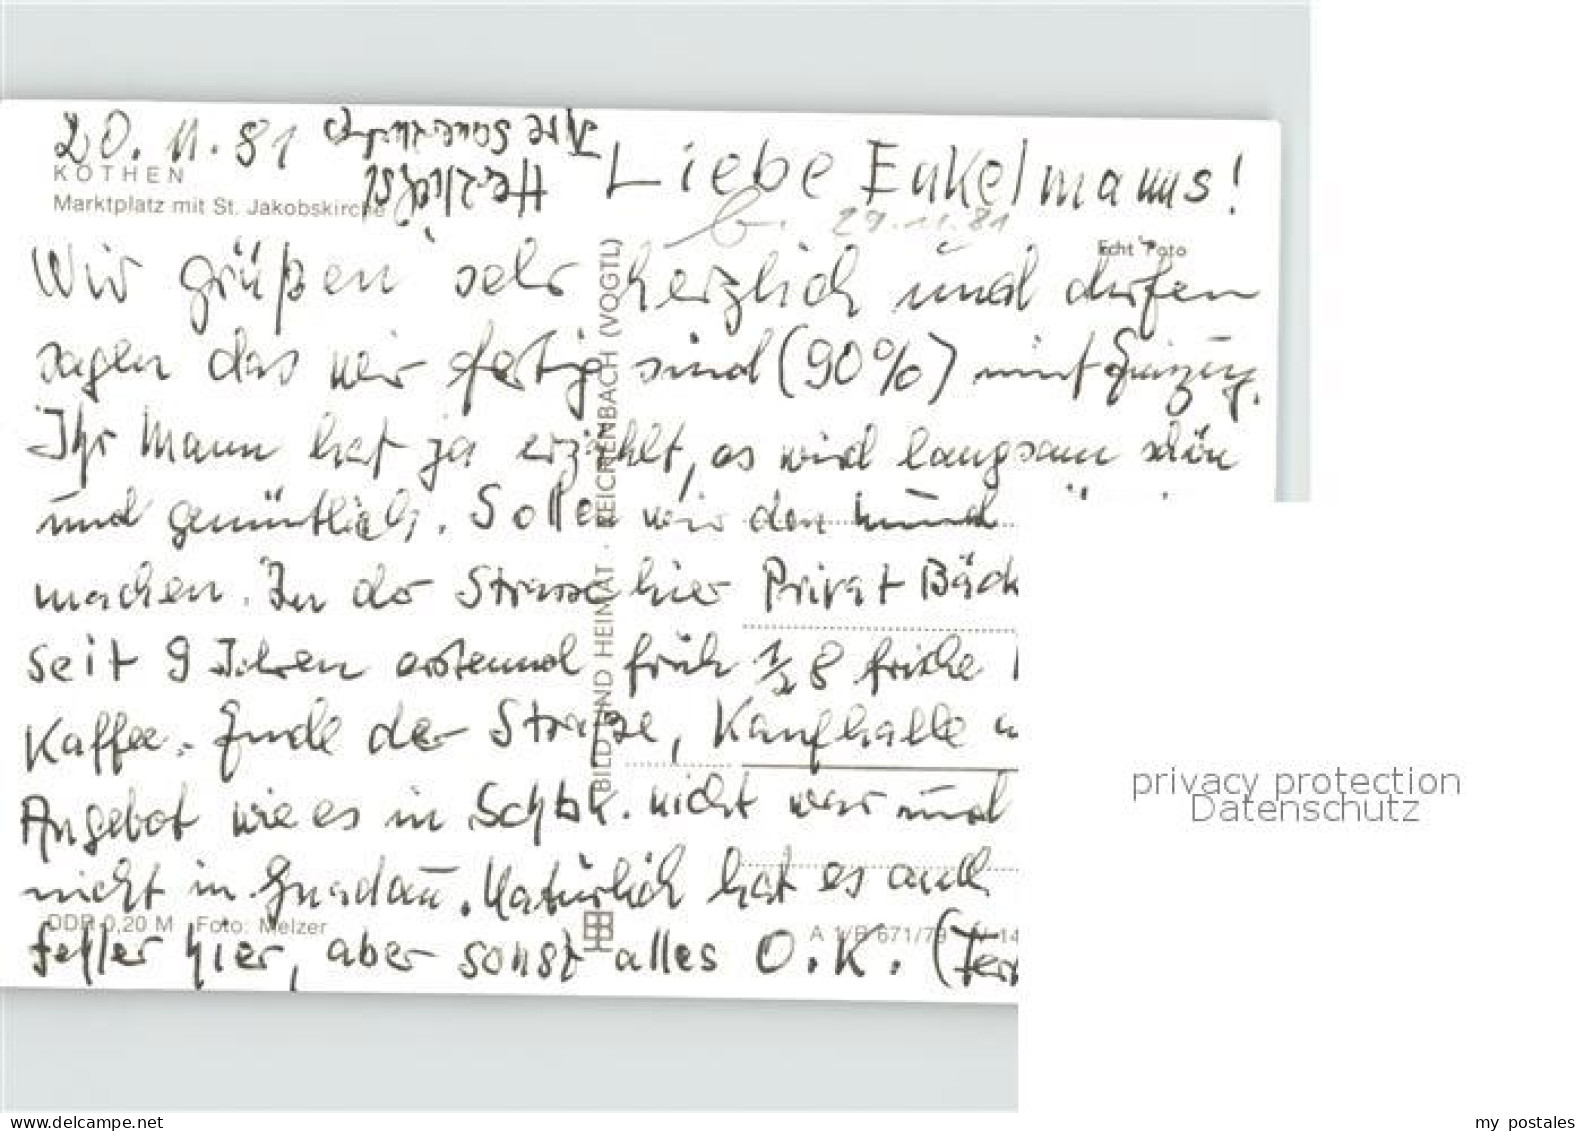 20.11.81
Herzlichst
Ihre
Liebe Enkelmanns!
KÖTHEN
Marktplatz mit St. Jakobskirche
b. 29.11.81
Echt Foto
Wir grüßen sehr herzlich und dürfen
sagen das wir fertig sind (90%) mit
Ihr Mann hat ja erzählt, es wird langsam schön
und gemütlich. Sollen wir den
machen. In der Strasse hier Privat Bäck
seit 9 Jahren erstemal früh 1/2 8 frische
Kaffee. Ende der Straße, Kaufhalle
Angebot wie es in Schbk. nicht war und
nicht in Gnadau. Natürlich hat es auch
DDR 0,20 M Foto: Melzer
A 1/B 671/79 IV 14
fehler hier, aber sonst alles O.K. (Fer
BILD UND HEIMAT · REICHENBACH (VOGTL)
privacy protection
Datenschutz
www.delcampe.net
my_postales